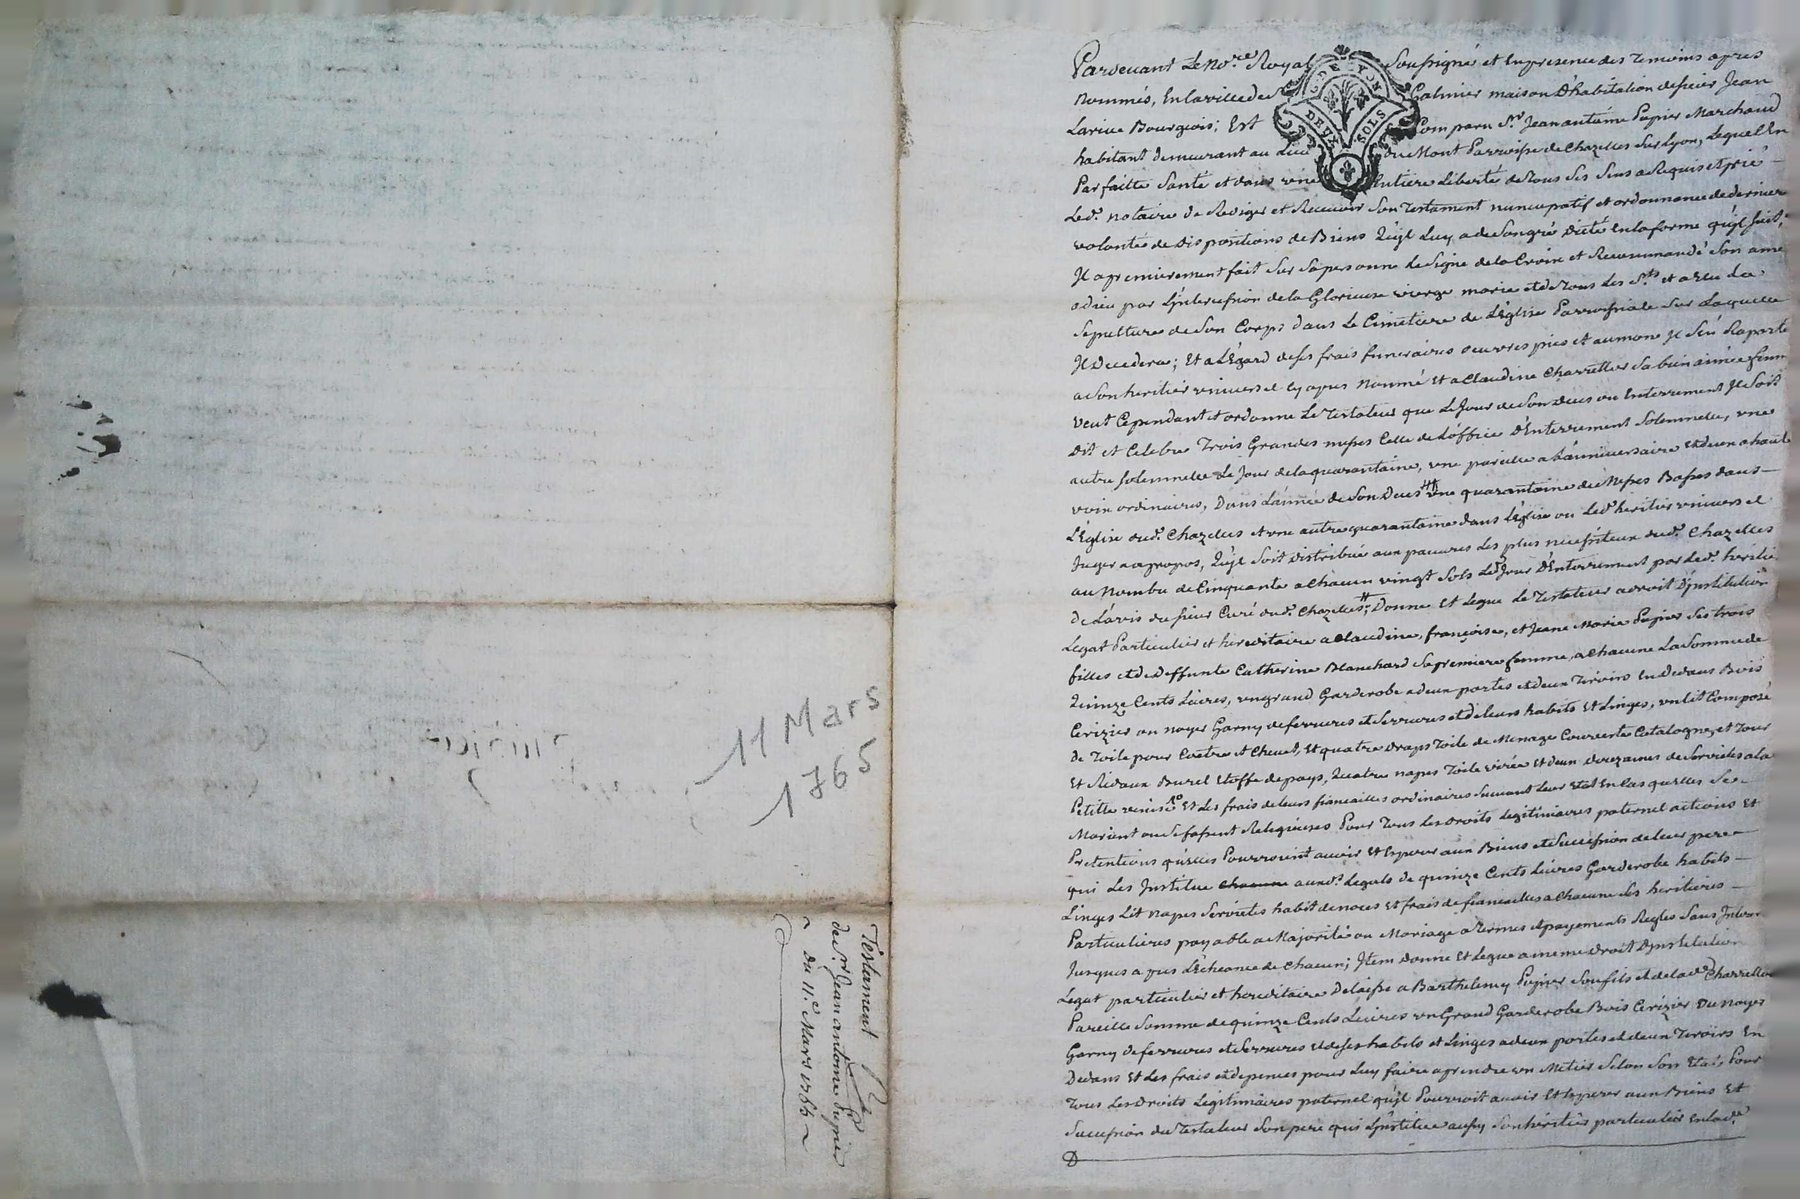 11 Mars
1765
Testament
de Sr. Jean antoine pupier
du 11e. Mars 1765
G. DE LYON
DEUX SOLS
Pardevant Le nore. Royal Soussigné et En presence des Temoins apres
nommés, En la ville de St Galmier maison D'habitation de sieur Jean
Larive Bourgeois; Est Comparu Sr. Jean antoine Pupier Marchand
habitant demeurant au Lieu du Mont Parroisse de Chazelles Sur Lyon, Lequel En
Parfaitte Santé et dans une Entiere Liberté de Tous Ses Sens a Requis et prié
Led. notaire de Rediger et Recevoir Son Testament nuncupatif et ordonnance de derniere
volonté de Dispositions de Biens Qu'jl Luy a de Son gré Dicté En la forme qu'jl Suit;
Jl a premierement fait Sur Sa personne Le Signe de la Croix et Recommandé Son ame
a dieu par L'jntercession de la Glorieuse vierge marie et de Tous Les Sts. et a Elu La
Sepulture de Son Corps dans Le Cimetiere de L'Eglise Parroissiale Sur Laquelle
Jl Decedera; Et a L'Egard de ses frais funeraires oeuvres pies et aumone Jl S'en Raporte
a Son heritier universel cy apres Nommé Et a Claudine Charretier Sa bien aimée femme
veut Cependant et ordonne Le Testateur que Le Jour de Son Deces ou Enterrement Jl Soit
Dit et Celebré Trois Grandes messes Celle de L'office D'Enterrement Solemnelle, une
autre solemnelle Le Jour de la quarantaine, une pareille a L'anniversaire Et deux a haute
voix ordinaires, Dans L'année de Son Deces une quarantaine de Messes Basses dans
L'Eglise dud. Chazelles et une autre quarantaine dans L'Eglise ou Led. heritier universel
Jugera apropos, Qu'jl Soit Distribué aux pauvres Les plus necessiteux dud. Chazelles
au Nombre de Cinquante a Chacun vingt Sols Led. Jour D'Enterrement par Led. heritier
de L'avis du sieur Curé dud. Chazelles; Donne Et Legue Le Testateur a droit D'jnstitution
Legat Particulier et hereditaire a Claudine, françoise, et Jeane Marie Pupier Ses trois
filles et de Deffunte Catherine Blanchard Sa premiere femme, a Chacune La Somme de
Quinze Cents Livres, un grand Garderobe a deux portes et deux Tiroirs En Dedans Bois
Cerizier ou noyer Garny de ferrures et Serrures et de Leurs habits Et Linges, un Lit Composé
de Toile pour Coetre et Chevet, Et quatre draps Toile de Menage Couverte Catalogne, et Tour
Et Rideaux Burel Etoffe de pays, Quatre napes Toile et deux douzaines de Serviettes a la
Petitte venise Et Les frais de Leurs fiançailles ordinaires Suivant Leur Etat En Cas quelles Se
Marient ou Se fassent Religieuses Pour Tous Les droits Legitimaires paternel actions Et
Pretentions qu'elles Pourroient avoir Et Esperer aux Biens et Succession de Leur pere
qui Les Jnstitue chacune auxd. Leguts de quinze Cents Livres Garderobe habits
Linges Lit napes Serviettes habit de noces Et frais de fiancailles a Chacune Ses heritieres
Particulieres payable a Majorité ou Mariage a Termes et payements Regles Sans Jnteret
Jusques a pres L'Echeance de Chacun; Jtem Donne Et Legue a meme droit D'jnstitution
Legat particulier et hereditaire Delaisse a Barthelemy Pupier Son fils et de lad. Charretier
Pareille Somme de quinze Cents Livres un Grand Garderobe Bois Cerizier ou noyer
Garny de ferrures et Serrures et de ses habits et Linges a deux portes et deux Tiroirs En
Dedans Et Les frais et depenses pour Luy faire aprendre un Metier Selon Son Etat, Pour
Tous Les Droits Legitimaires paternel qu'jl Pourroit avoir Et Esperer aux Biens Et
Succession du Testateur Son pere qui L'jnstitue aussy Son héritier particulier En lad.